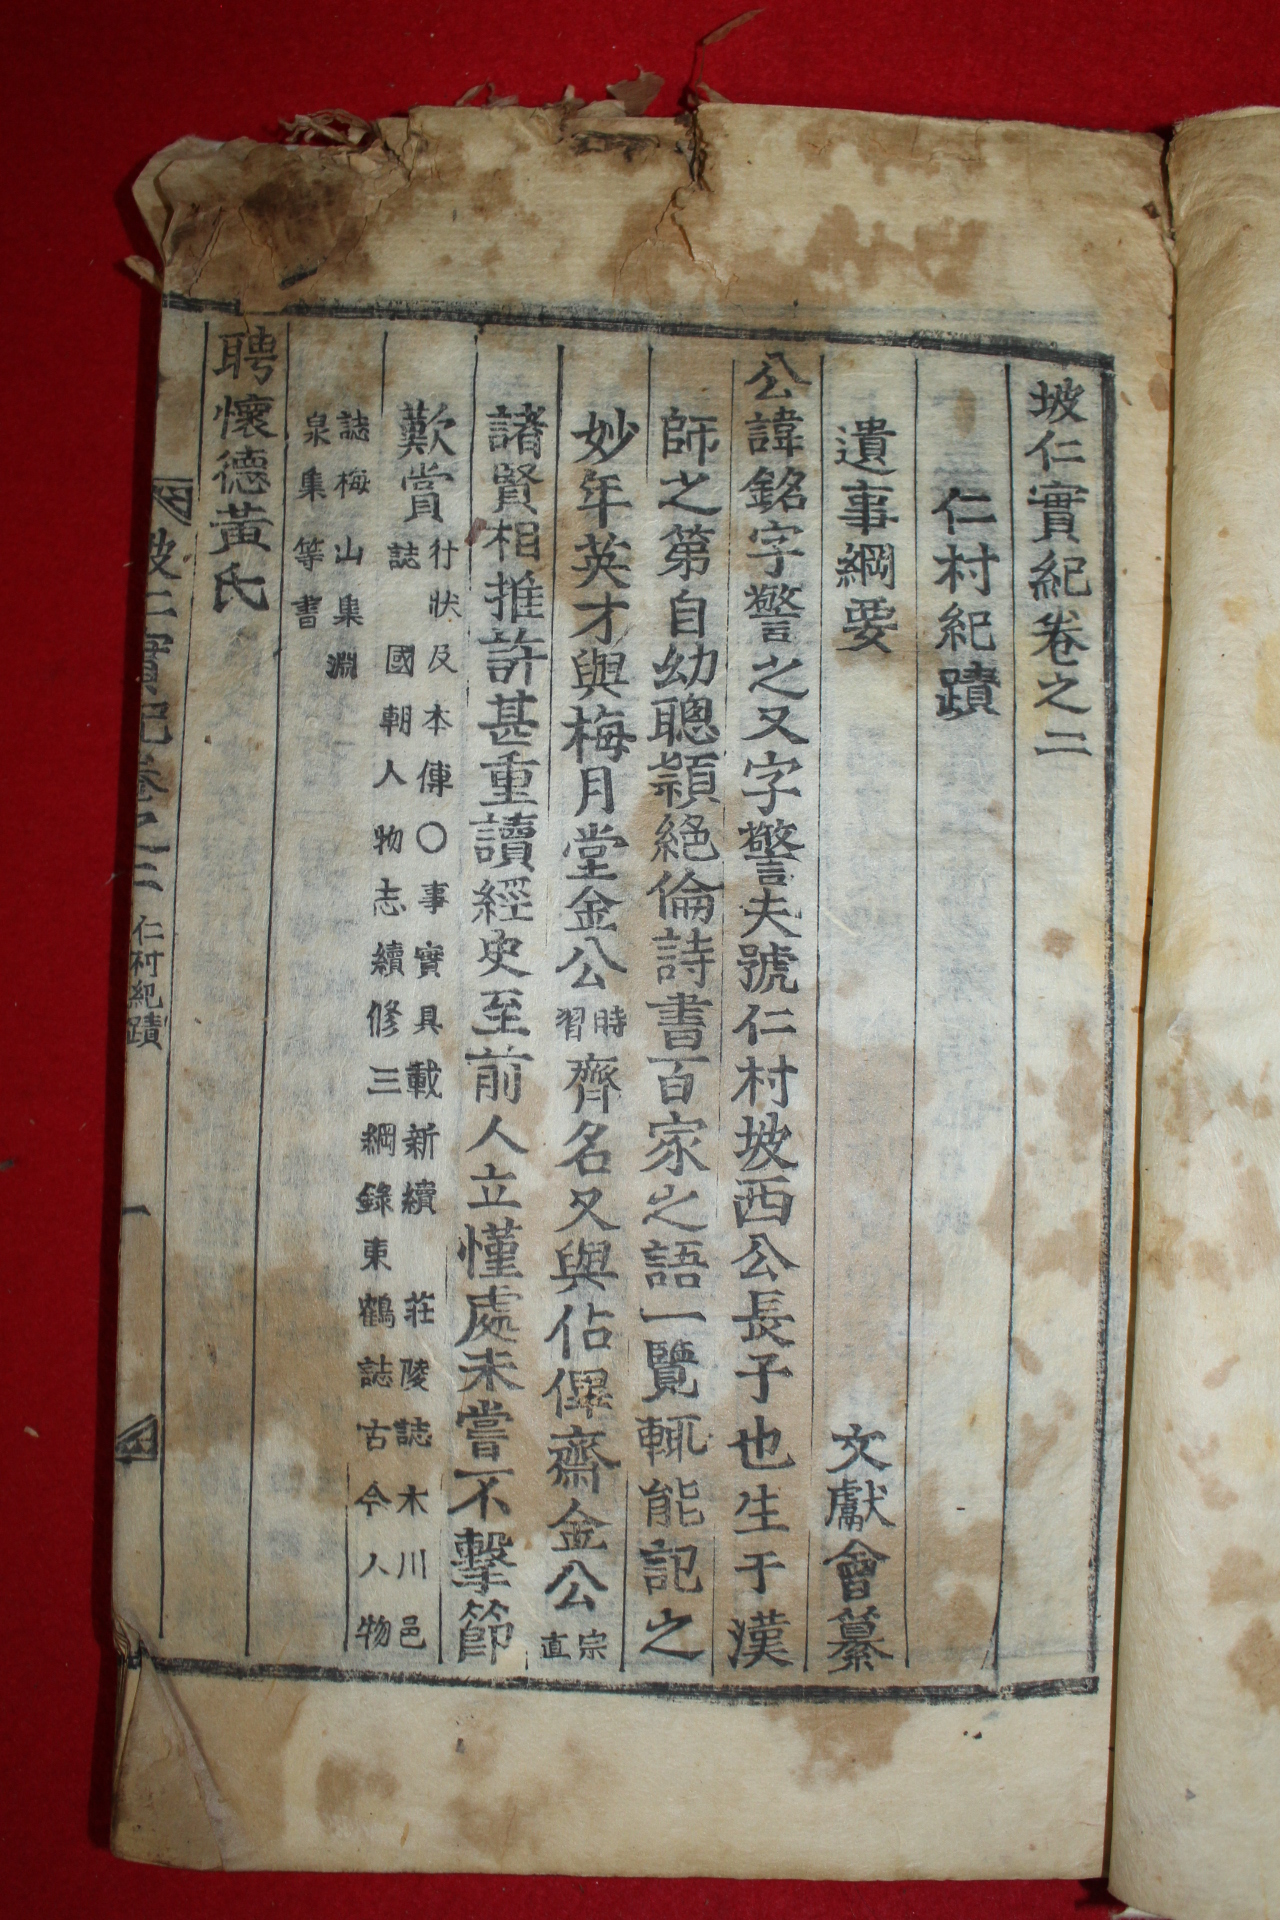 坡仁實紀卷之二
仁村紀蹟
遺事綱要 文獻會纂
公諱銘字警之又字警夫號仁村坡西公長子也生于漢
師之第自幼聰穎絕倫詩書百家之語一覽輒能記之
妙年英才與梅月堂金公時習齊名又與佔僤齋金公宗直
諸賢相推許甚重讀經史至前人立慬處未嘗不擊節
歎賞行狀及本傳〇事實具載新續 莊陵誌木川邑
誌 國朝人物志續修三綱錄東鶴誌古今人物
誌梅山集淵
泉集等書
聘懷德黃氏
坡仁實紀卷之二 仁村紀蹟 一